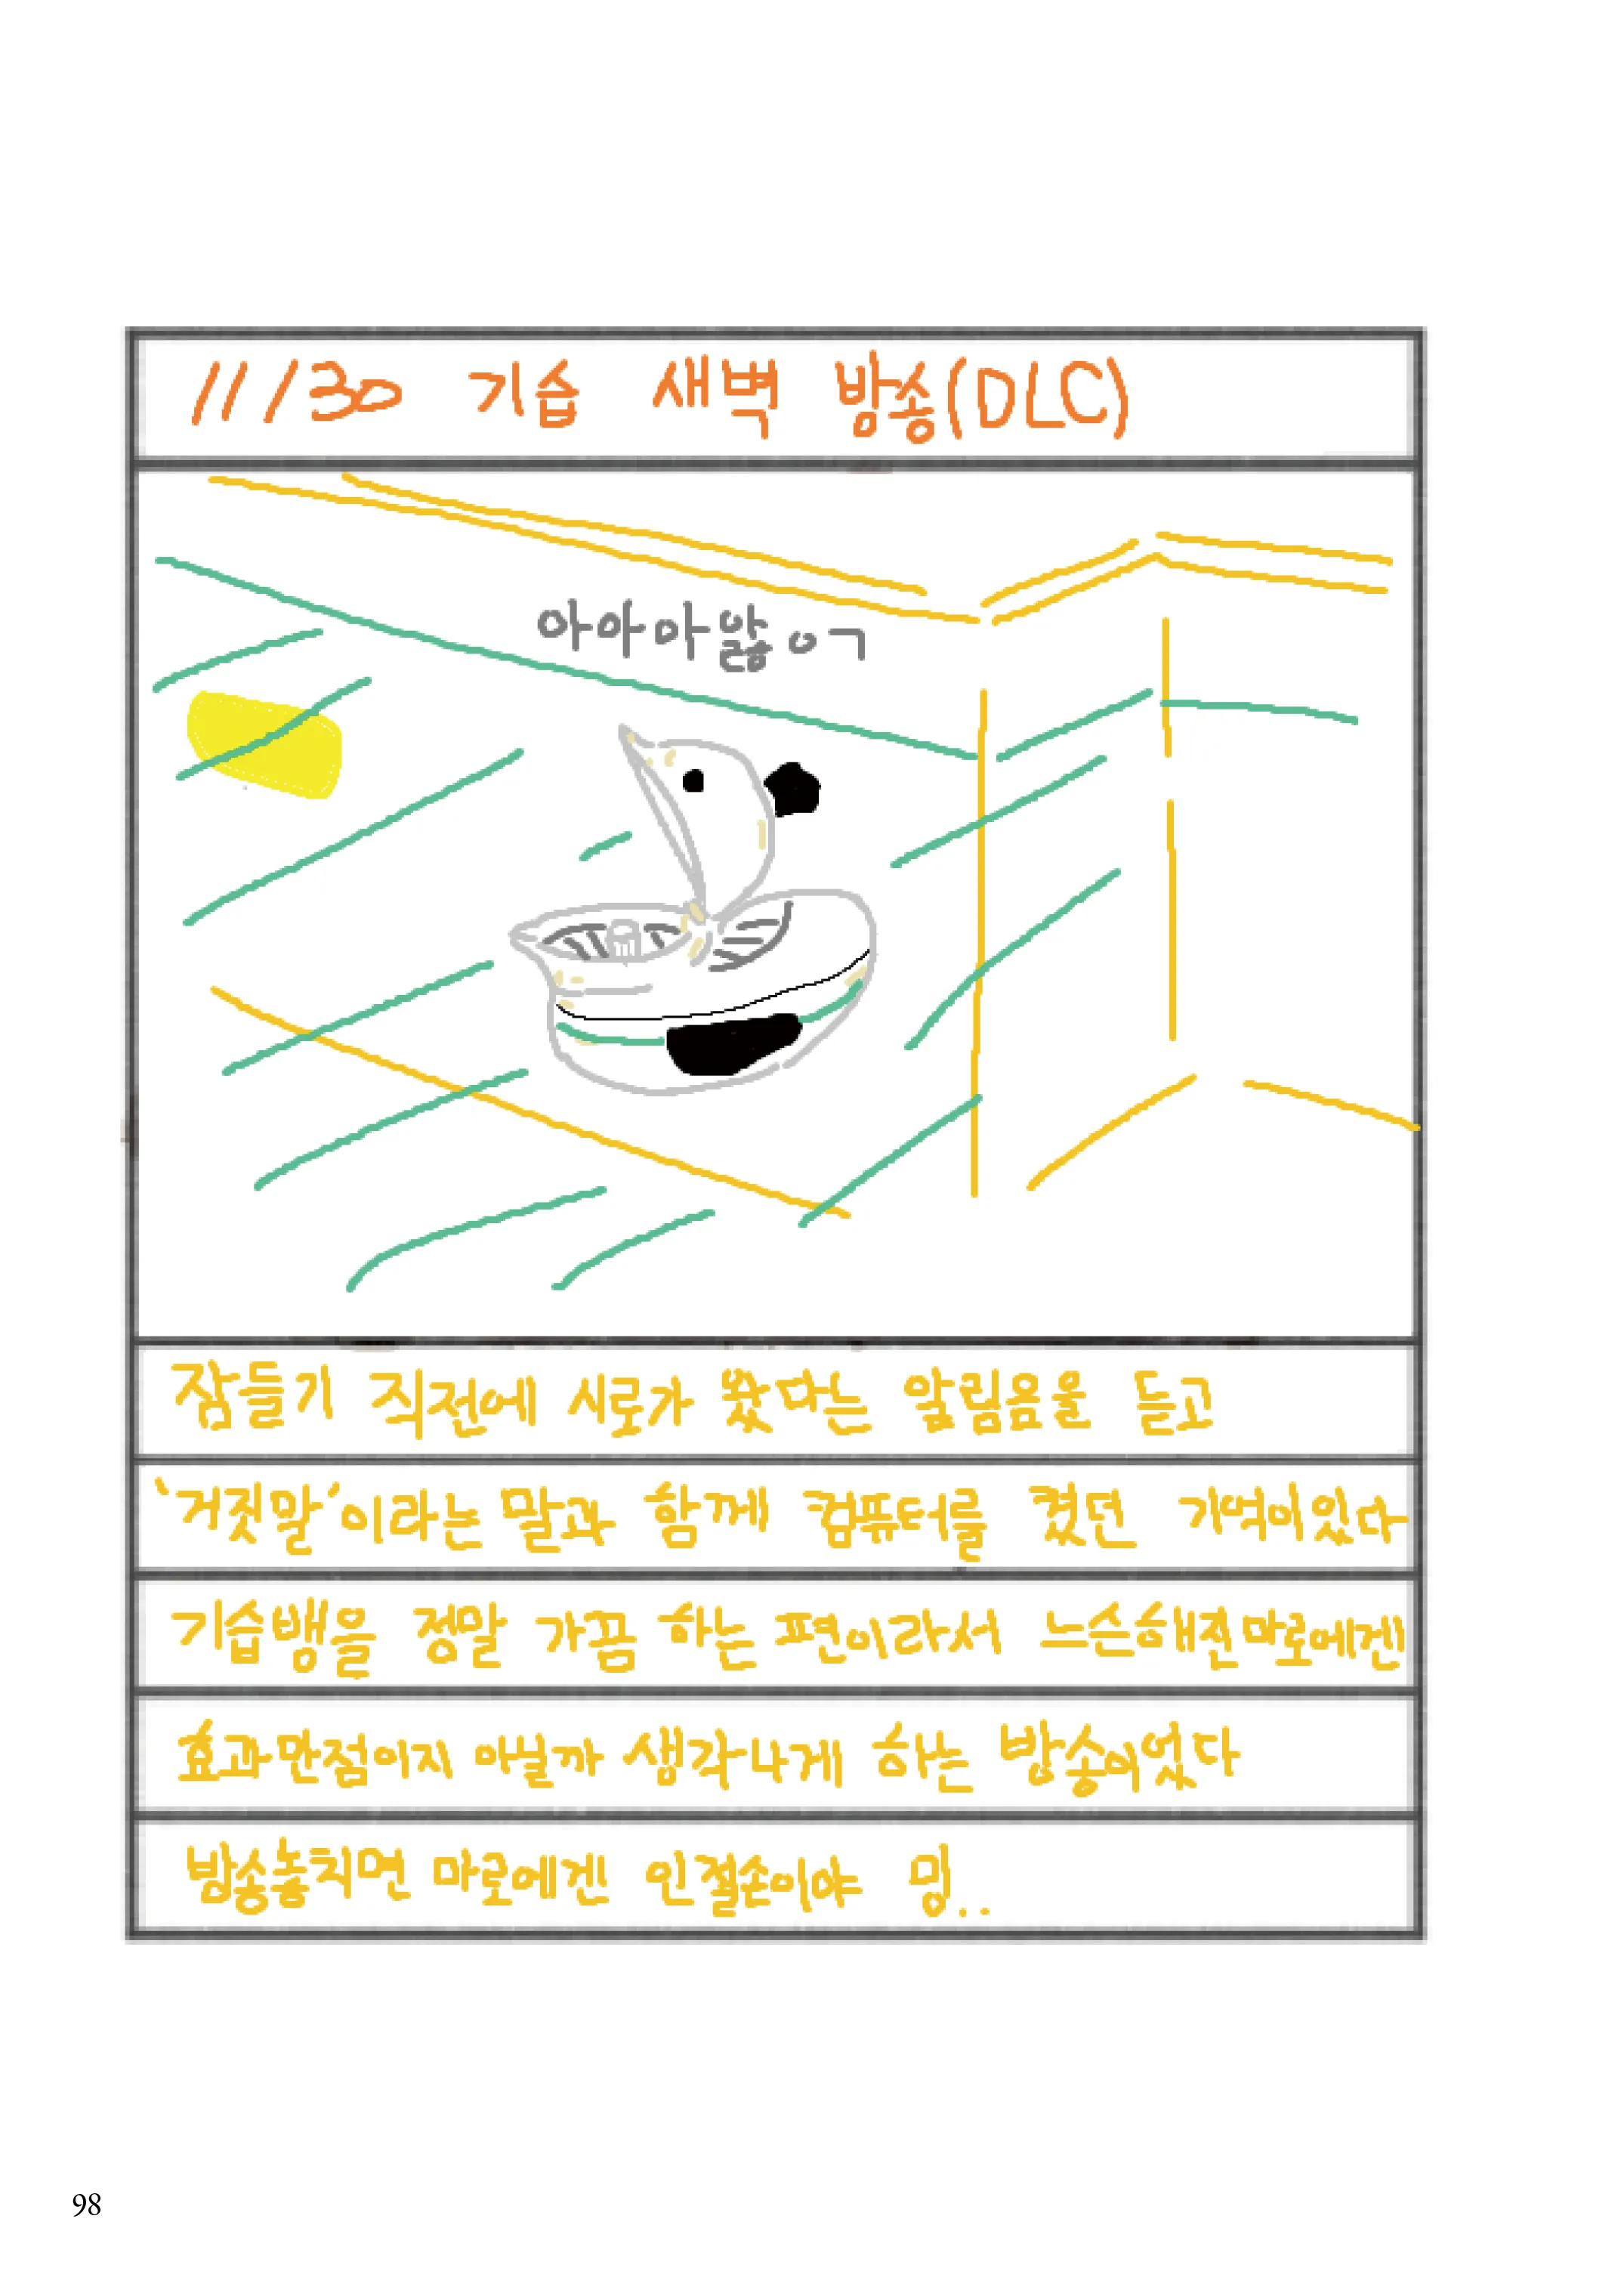 11/30 기습 새벽 방송(DLC)
잠들기 직전에 시로가 왔다는 알림음을 듣고
'거짓말'이라는 말과 함께 컴퓨터를 켰던 기억이있다
기습뱅을 정말 가끔 하는 편이라서 느슨해진마로에겐
효과만점이지 아닐까 생각나게 하는 방송이었다
방송놓치면 마로에겐 인절손이야 밍..
98